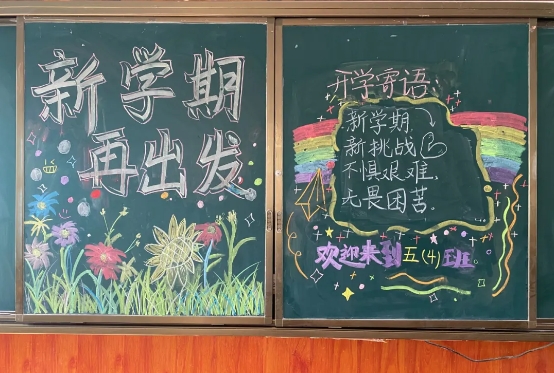 新学期
再出发
开学寄语:
新学期、
新挑战
不惧艰难、
无畏困苦.
欢迎来到五(4)班